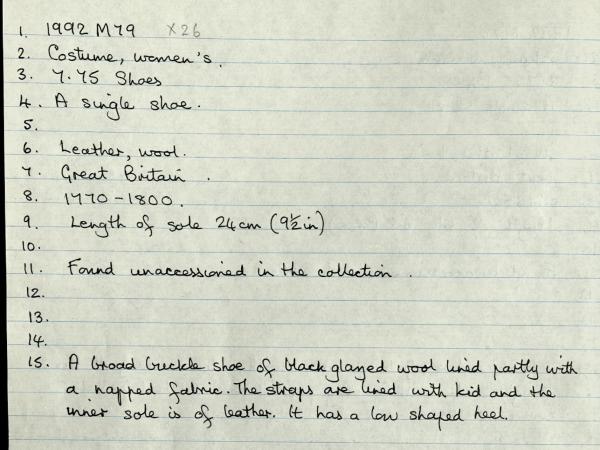 1. 1992 M79 X26
2. Costume, women's.
3. 7.75 Shoes
4. A single shoe.
5.
6. Leather, wool.
7. Great Britain.
8. 1770-1800.
9. Length of sole 24cm (9½in)
10.
11. Found unaccessioned in the collection.
12.
13.
14.
15. A broad buckle shoe of black glazed wool lined partly with
a napped fabric. The straps are lined with kid and the
inner sole is of leather. It has a low shaped heel.